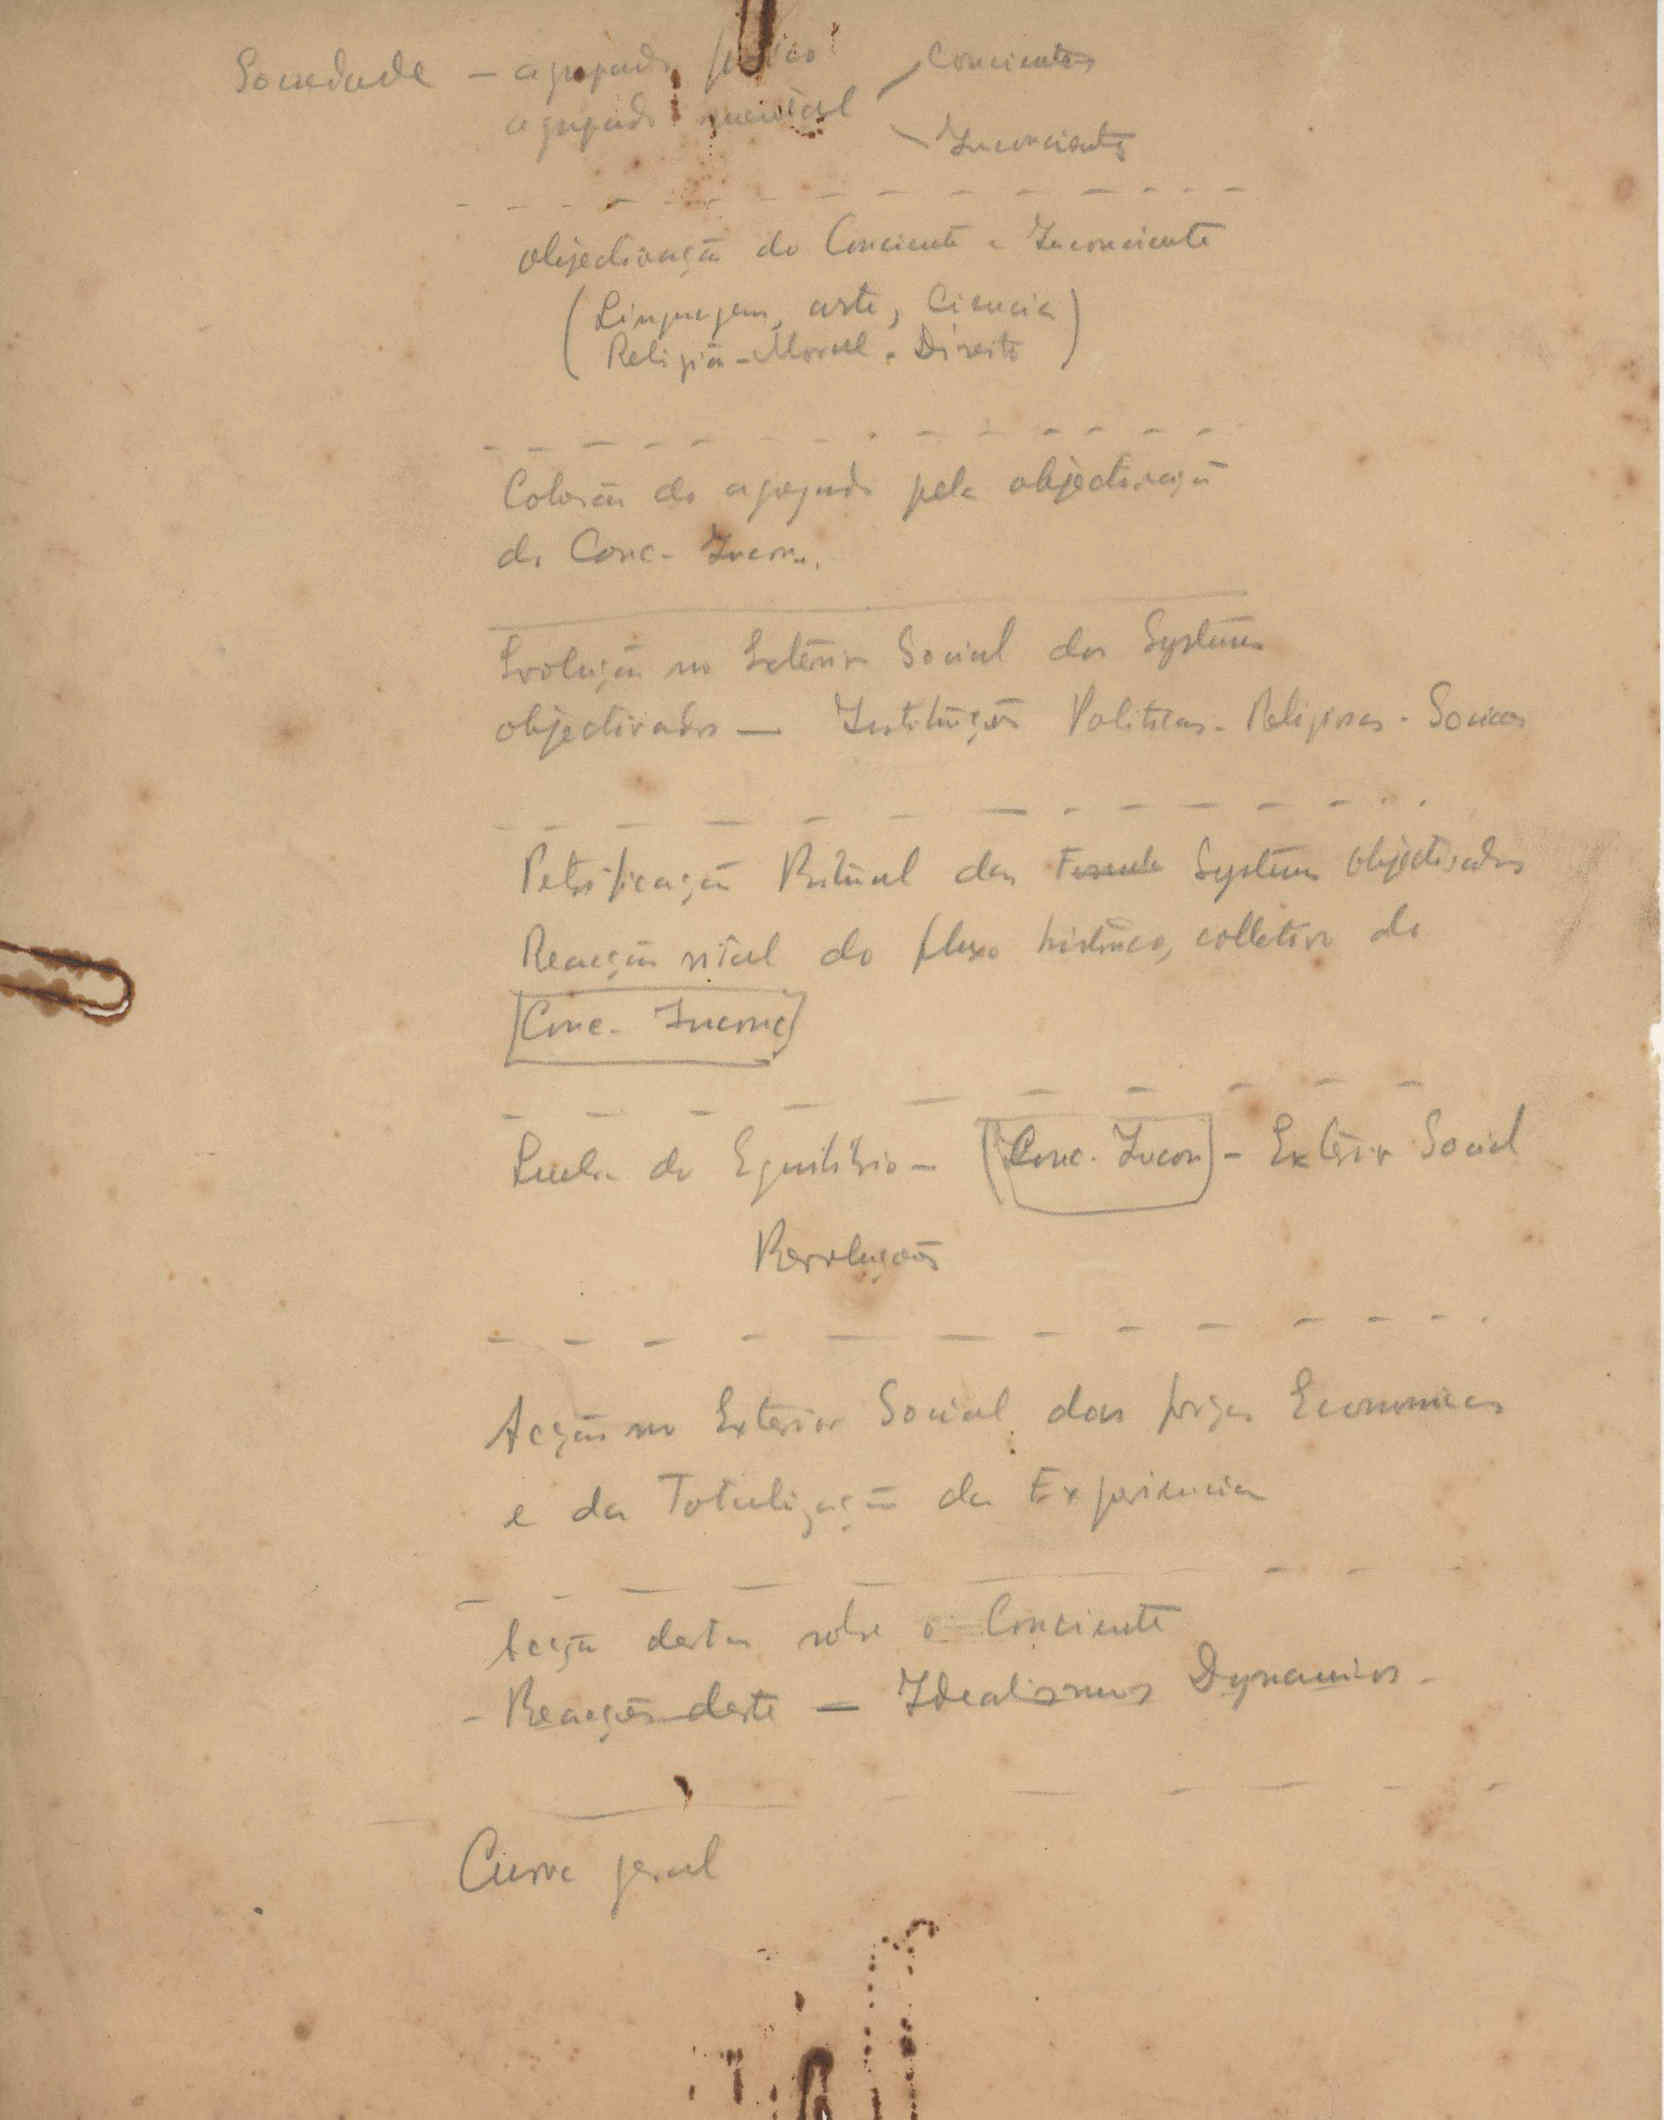 Sociedade — agregado físico Conscientes
agregado mental Inconscientes
objectivação do Conciente e Inconciente
(Linguagem, arte, Ciencia
Religião - Moral - Direito)
Coesão do agregado pela objectivação
do Conc- Incon.
Evolução no Exterior Social dos Systemas
objectivados — Instituições Politicas - Religiosas - Sociaes
Petrificação Ritual das Systemas objectivados
Reacção vital do fluxo historico, colletivo do
Conc- Inconc
Lucta de Equilibrio — (Conc. Incon) - Exterior Social
Revoluções
Acção no Exterior Social das forças Economicas
e da Totalização da Experiencia
Acção destas sobre o Conciente
- Reacções deste — Idealismos Dynamicos -
Curva geral